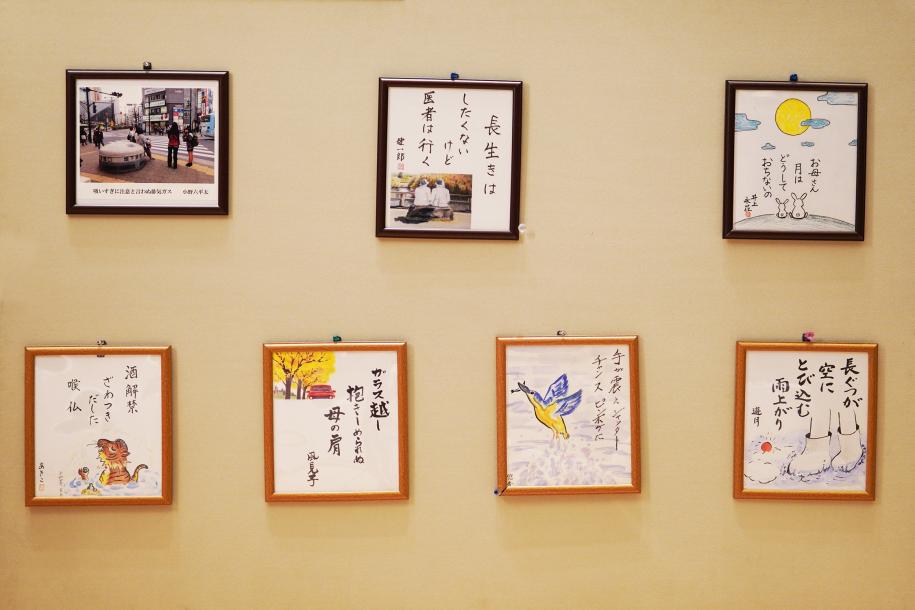 吸いすぎに注意と言わぬ排気ガス 小野六平太
長生きは
したくない けど
医者は行く
健一郎
お母さん
月は
どうして
おちないの
井上
酒解禁
ざわつきだした
喉仏
あきこ
ガラス越し
抱きしめられぬ
母の肩
風見子
手が震え シャッター
チャンス ピンボケに
長ぐつが
空に
とび込む
雨上がり
遊月